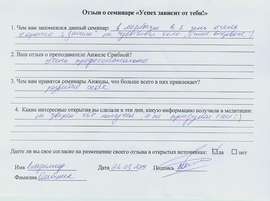 Отзыв о семинаре «Успех зависит от тебя!»
1. Чем вам запомнился данный семинар: В медитации в 1 день очень
хорошо
2. Ваш отзыв о преподавателе Анжеле Срибной?
очень профессионально
3. Чем вам нравятся семинары Анжелы, что больше всего в них привлекает?
развитие себя
4. Какие интересные открытия вы сделали в эти дни, какую информацию получили в медитации:
не уверен что получил, а не придумал сам :)
Даете ли вы свое согласие на размещение своего отзыва в открытых источниках: да нет
Имя Владимир Дата 26.05.2019 Подпись
Фамилия